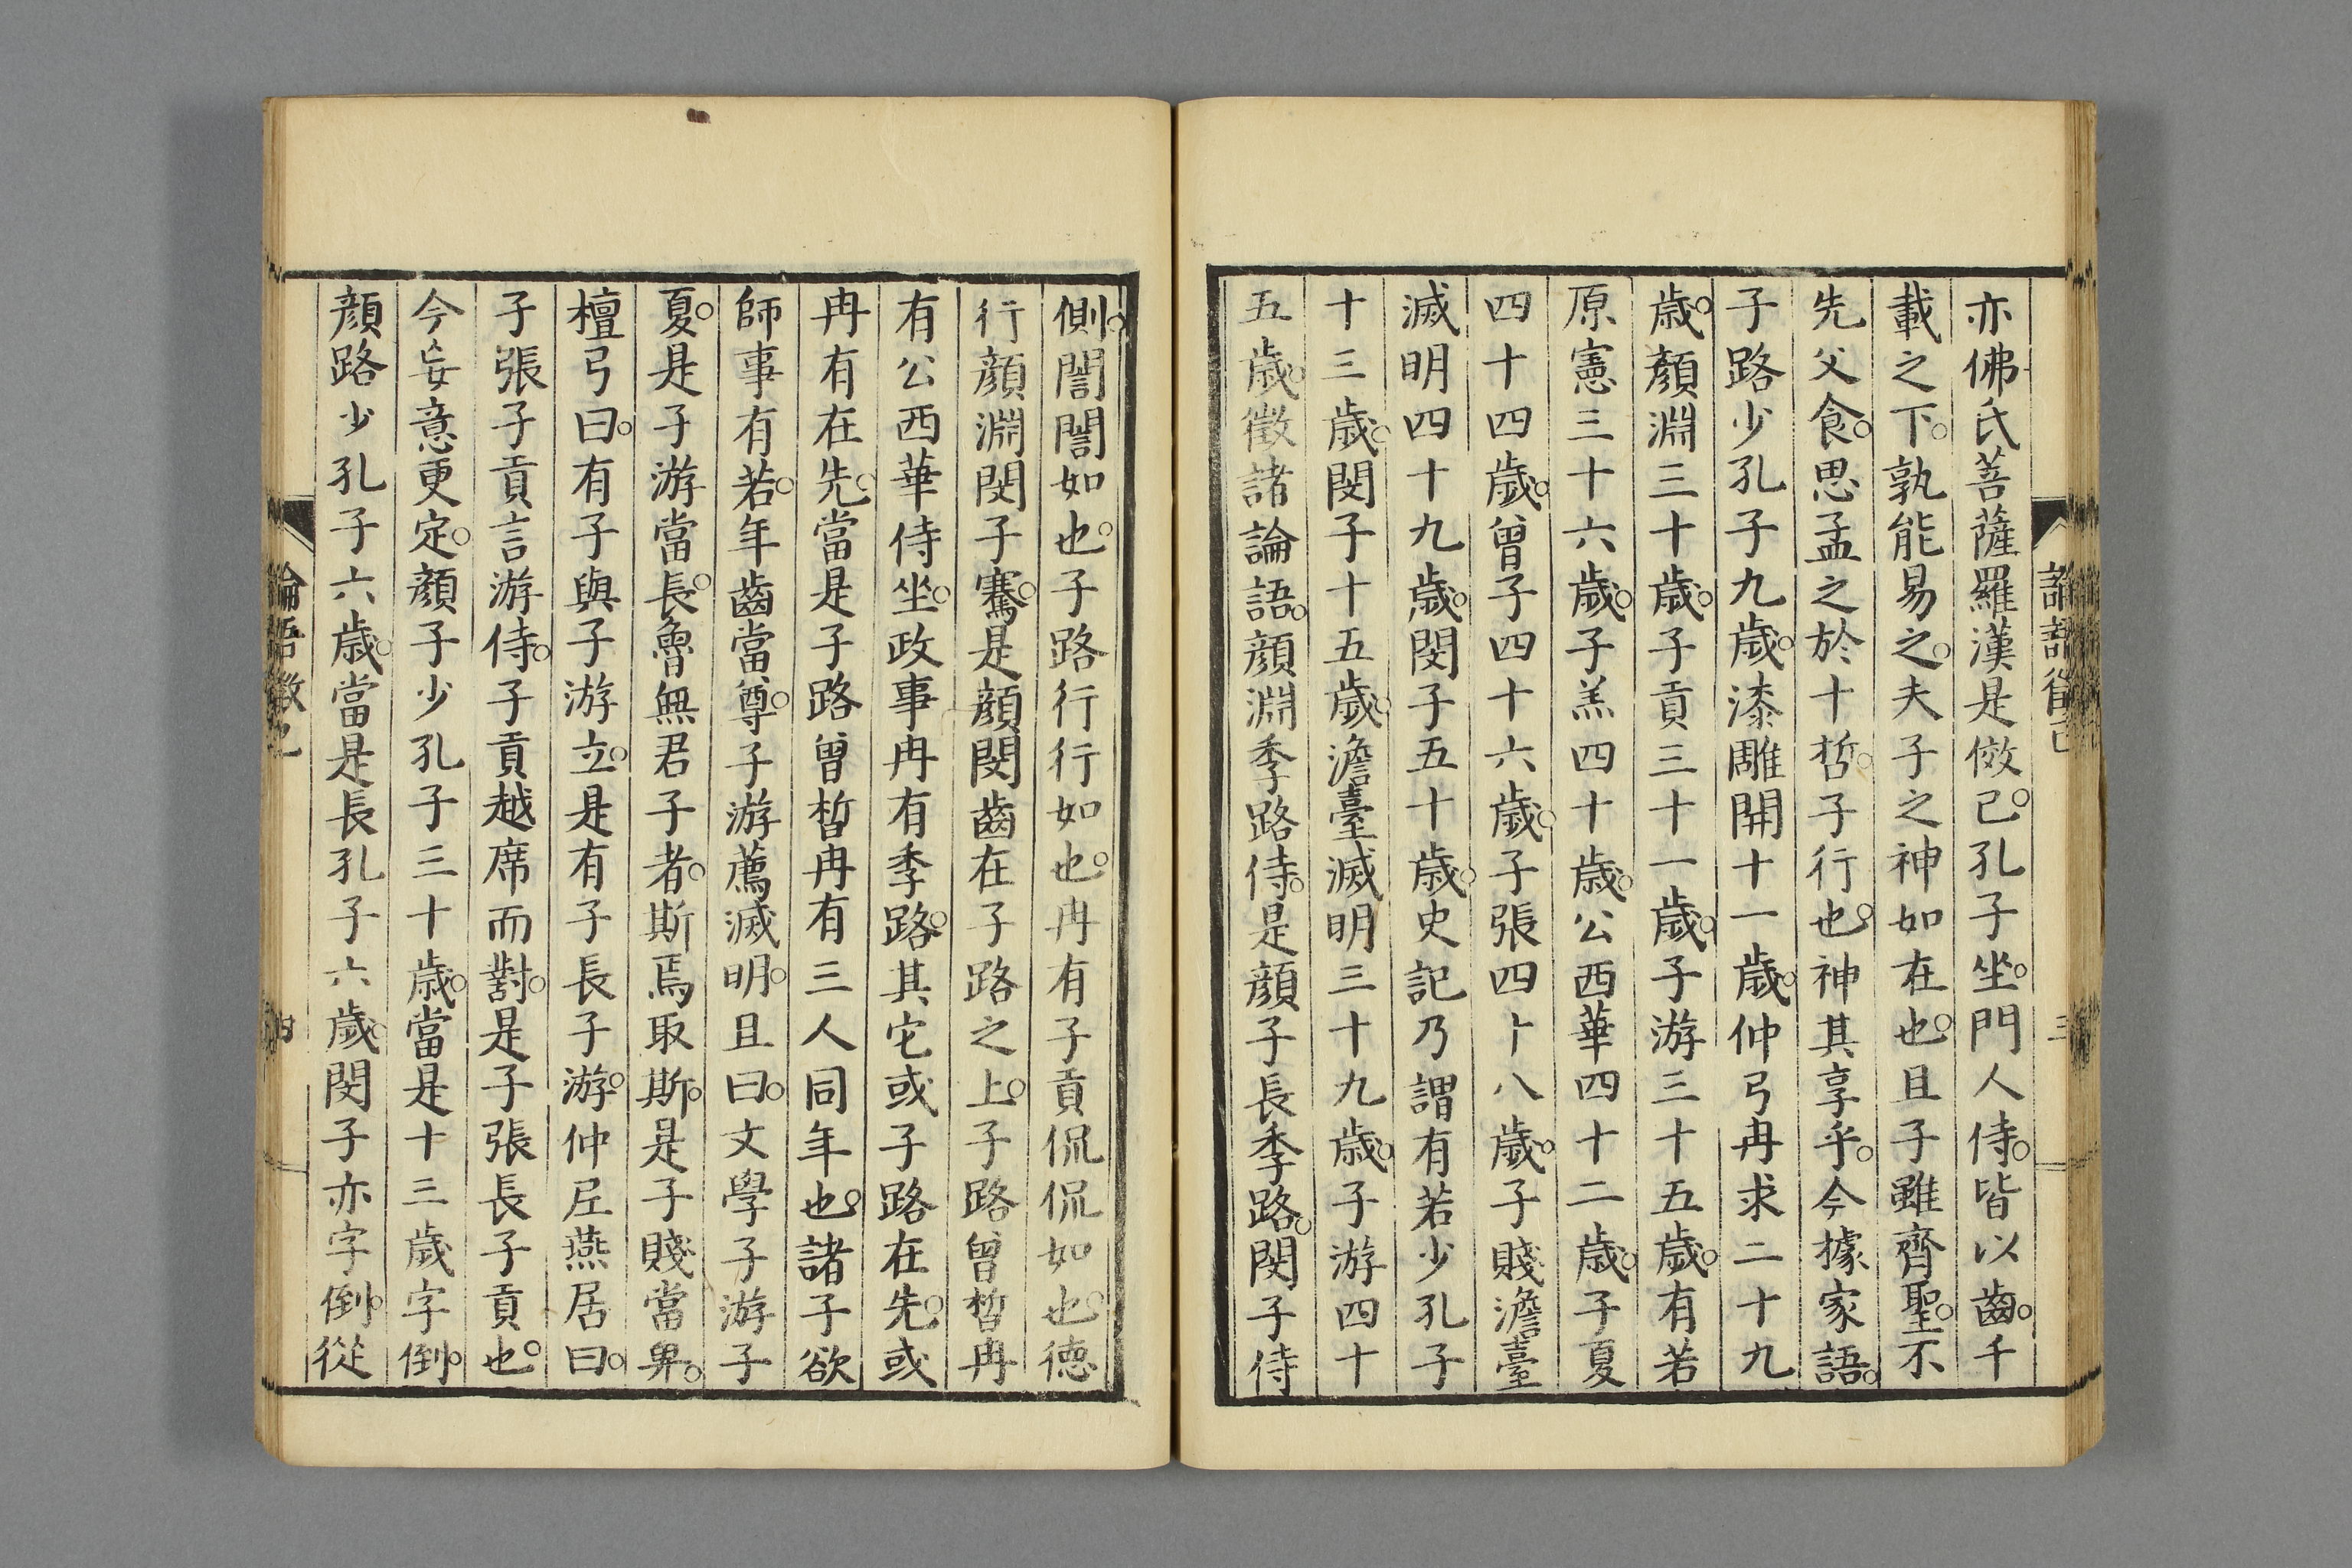 亦佛氏菩薩羅漢是倣已。孔子坐。門人侍。皆以齒。千
載之下。孰能易之。夫子之神如在也。且子雖齊聖。不
先父食。思孟之於十哲。子行也。神其享乎。今據家語。
子路少孔子九歲。漆雕開十一歲。仲弓冉求二十九
歲。顏淵三十歲。子貢三十一歲。子游三十五歲。有若
原憲三十六歲。子羔四十歲。公西華四十二歲。子夏
四十四歲。曾子四十六歲。子張四十八歲。子賤澹臺
滅明四十九歲。閔子五十歲。史記乃謂有若少孔子
十三歲。閔子十五歲。澹臺滅明三十九歲。子游四十
五歲。徵諸論語。顏淵季路侍。是顏子長季路。閔子侍
側。誾誾如也。子路行行如也。冉有子貢侃侃如也。德
行顏淵閔子騫。是顏閔齒在子路之上。子路曾晳冉
有公西華侍坐。政事冉有季路。其它或子路在先。或
冉有在先。當是子路曾晳冉有三人同年也。諸子欲
師事有若。年齒當尊。子游薦滅明。且曰。文學子游子
夏。是子游當長。魯無君子者。斯焉取斯。是子賤當畀。
檀弓曰。有子與子游立。是有子長子游。仲尼燕居曰。
子張子貢言游侍。子貢越席而對。是子張長子貢也。
今妄意更定。顏子少孔子三十歲。當是十三歲字倒。
顏路少孔子六歲。當是長孔子六歲。閔子亦字倒。從
論語徵己
三
論語徵己